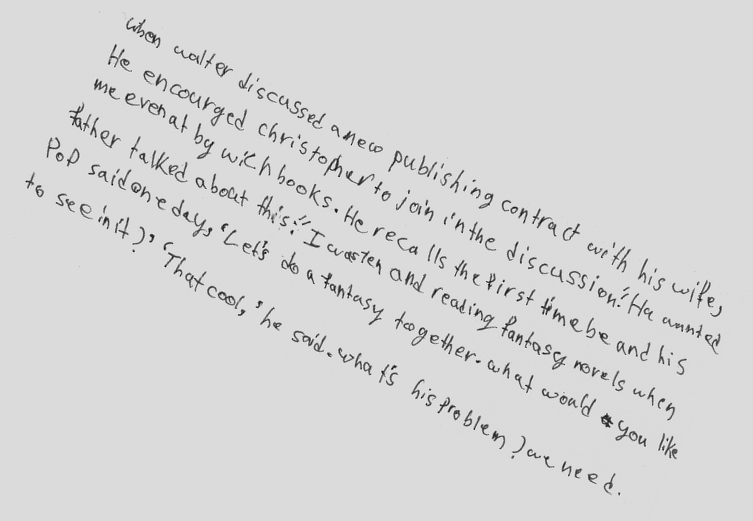 when walter discussed a new publishing contract with his wife,
He encourged christopher to join in the discussion. "He wanted
me even at by wich books. He recalls the first time he and his
father talked about this: "I was ten and reading fantasy novels when
Pop said one day, 'Let's do a fantasy together. what would you like
to see in it?' 'That cool,' he said. what's his problem? we need.